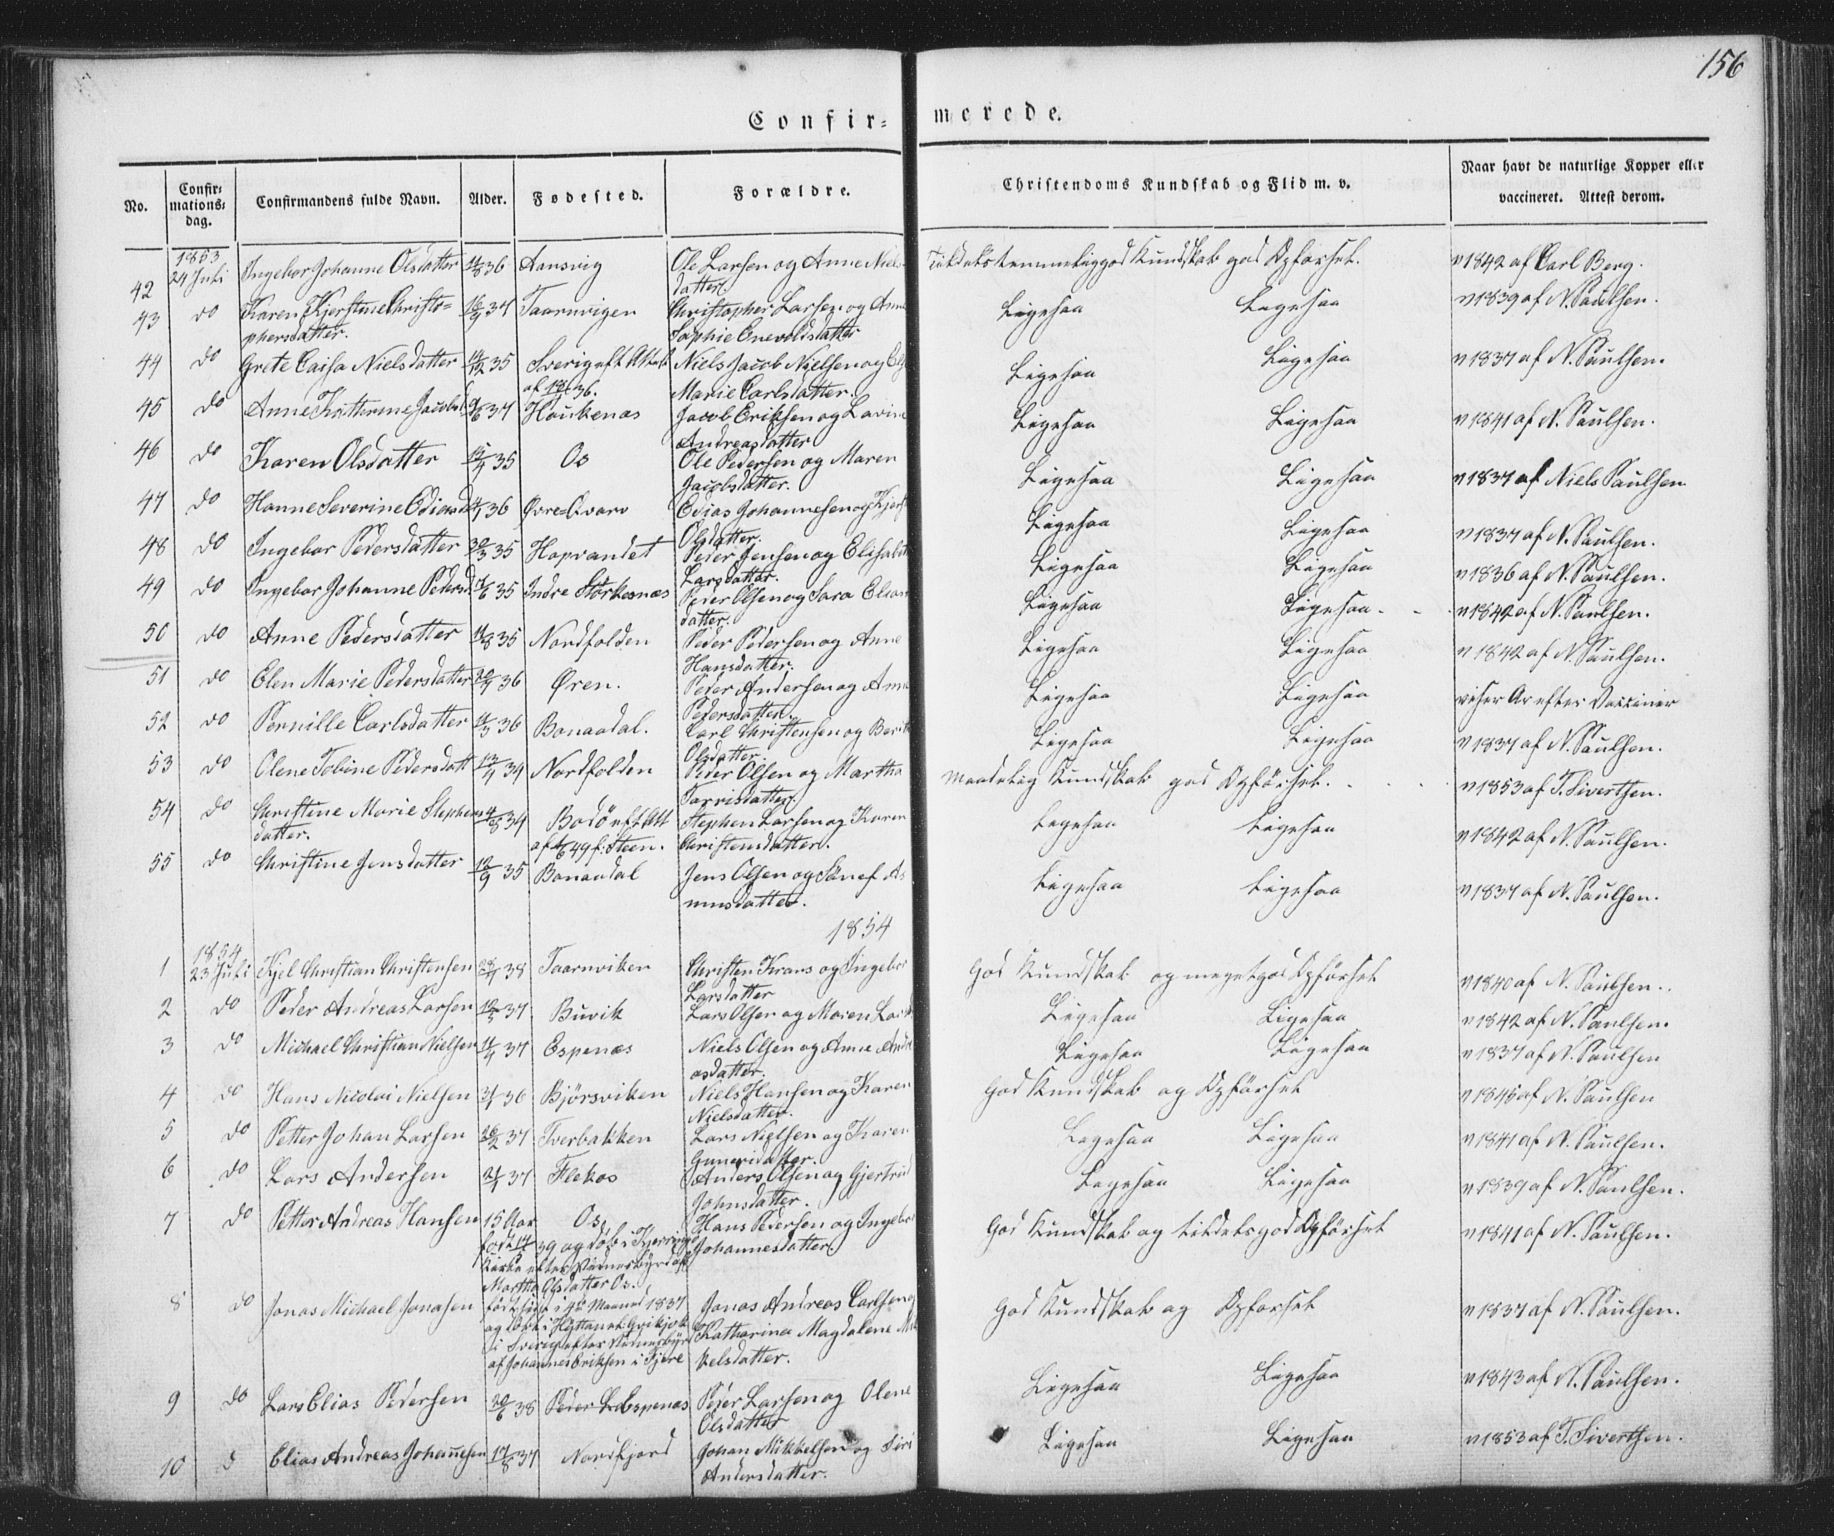 156
Confirmerede.
No. Confirmationsdag. Confirmandens fulde Navn. Alder. Fødested. Forældre. Christendoms Kundskab og Flid m. v. Naar havt de naturlige Kopper eller vaccineret. Attest derom.
1853
42 24 Juli Ingebor Johanne Olsdatter 36 Aansvig Ole Larsen og Anne Nielsdatter god Kundskab god Opførsel. v 1842 af Carl Berg.
43 do Karen Kjerstine Christophersdatter. 34 Taarnvigen Christopher Larsen og Anne Sophie Enevoldsdatter Ligesaa Ligesaa v 1839 af N. Paulsen.
44 do Grete Caisa Nielsdatter 35 Sverig eft Attest af 36. Niels Jacob Nielsen og Marie Carlsdatter. Ligesaa Ligesaa v 1837 af N. Paulsen.
45 do Anne Kathrine Jacobsd 37 Haukenæs Jacob Eriksen og Andreasdatter Ligesaa Ligesaa v 1841 af N. Paulsen.
46 do Karen Olsdatter 35 Os Ole Pedersen og Maren Jacobsdatter. Ligesaa Ligesaa v 1837 af Niels Paulsen
47 do Hanne Severine 36 Øvre-Qvarv Johannesen og Olsdatter. Ligesaa Ligesaa v 1837 af N. Paulsen.
48 do Ingebor Pedersdatter 35 Hopvandet Peder Jensen og Elisabeth Larsdatter. Ligesaa Ligesaa v 1836 af N. Paulsen.
49 do Ingebor Johanne Pedersd 35 Indre Storkesnæs Peder Olsen og Sara datter. Ligesaa Ligesaa v 1842 af N. Paulsen.
50 do Anne Pedersdatter 35 Nordfolden Peder Pedersen og Anne Hansdatter. Ligesaa Ligesaa v 1842 af N. Paulsen.
51 do Elen Marie Pedersdatter 36 Øren. Peder Andersen og Anne Pedersdatter. Ligesaa Ligesaa viser Ar efter Vacciner
52 do Pernille Carlsdatter 36 Bonaadal. Carl Christensen og Olsdatter. Ligesaa Ligesaa v 1837 af N. Paulsen.
53 do Olene Tobine Pedersdatt 34 Nordfolden Peder Olsen og Martha Maadelig Kundskab god Opførsel. v 1853 af T. Sivertsen.
54 do Christine Marie Stephensdatter. 34 Bodö eft Att af 49 f: Steen. Stephen Larsen og Karen Christensdatter. Ligesaa Ligesaa v 1842 af N. Paulsen.
55 do Christine Jensdatter 35 Bonaadal Jens Olsen og Ligesaa Ligesaa v 1837 af N. Paulsen.
1854
1854
1 23 Juli Kjel Christian Christensen 38 Taarnviken Christen Krans og Ingebor Larsdatter God Kundskab og meget god Opförsel v 1840 af N. Paulsen.
2 do Peder Andreas Larsen 37 Buvik Lars Olsen og Maren Ligesaa Ligesaa v 1842 af N. Paulsen.
3 do Michael Christian Nielsen 37 Espenæs Niels Olsen og Anne Andreasdatter. Ligesaa Ligesaa v 1837 af N. Paulsen
4 do Hans Nicolai Nielsen 36 Bjørsviken Niels Hansen og Karen Nielsdatter. God Kundskab og Opførsel v 1845 af N. Paulsen
5 do Petter Johan Larsen 37 Tverbakken Lars Nielsen og Karen Ligesaa Ligesaa v 1841 af N. Paulsen.
6 do Lars Andersen 37 Flekos Anders Olsen og Gjertrud Johnsdatter. Ligesaa Ligesaa v 1839 af N. Paulsen.
7 do Petter Andreas Hansen 15 Aar Os Hans Pedersen og Ingebor Johannesdatter. God Kundskab og god Opførsel v 1841 af N. Paulsen.
født 39 og döb i Kjerringö Kirke efter Vidnesbyrd af Martha Olsdatter Os.
8 do Jonas Michael Jonasen Jonas Andreas Carlsen og Katharina Magdalene God Kundskab og Opførsel v 1837 af N. Paulsen.
i Maaned 1837 og döbt i Qvikjok i Sverig efter Vidnesbyrd af Johannes Eriksen i
9 do Lars Elias Pedersen 38 Espenæs Peder Larsen og Olene Olsdatter Ligesaa Ligesaa v 1843 af N. Paulsen.
10 d Elias Andreas Johannesen 37 Nordfjord Johan Mikkelsen og Siri Andersdatter. Ligesaa Ligesaa v 1853 af T. Sivertsen.